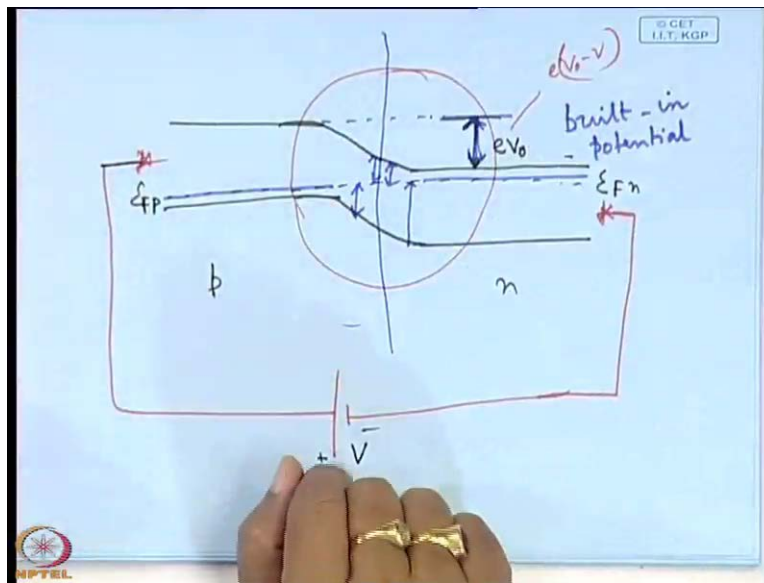 © CET
I.I.T. KGP
e(V₀-V)
built-in
potential
eV₀
ℰFp
ℰFn
p
n
-
+
V
-
NPTEL